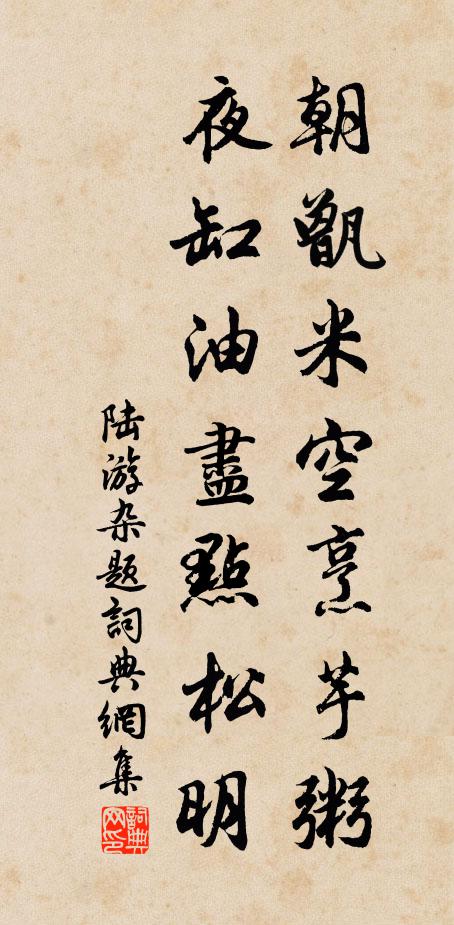 朝甑米空烹芋粥
夜缸油盡點松明
陆游杂题詞典網集
詞典网印